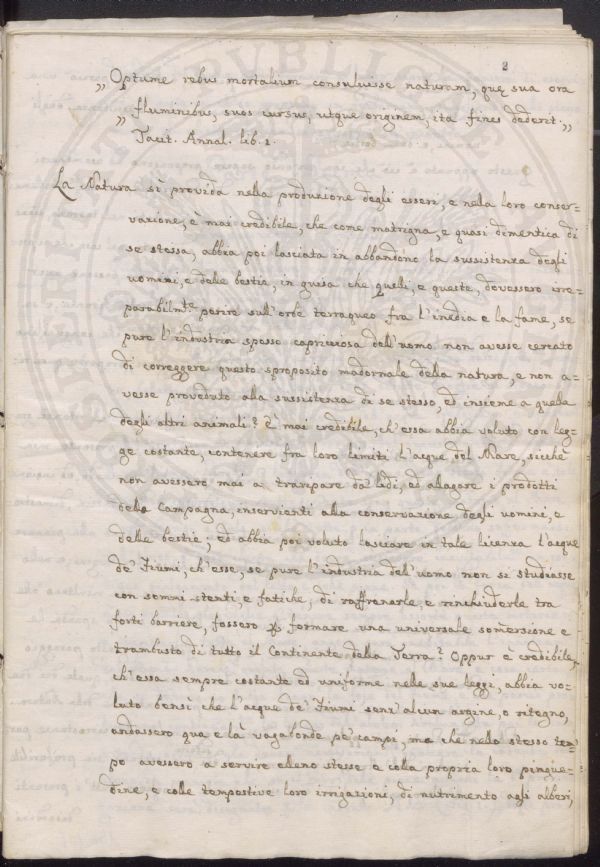 2
„ Optume rebus mortalium consuluisse naturam, que sua ora
„ fluminibus, suos cursus, utque originem, ita fines dederit. „
Tacit. Annal. lib. 1.
La Natura sì provida nella produzione degli esseri, e nella loro conser-
vazione, è mai credibile, che come matrigna, e quasi dimentica di
se stessa, abbia poi lasciata in abbandono la sussistenza degli
uomini, e delle bestie, in guisa che quelli, e queste, dovessero irre-
parabilmte perire sull'orbe terraqueo fra l'inedia e la fame, se
pure l'industria spesso capricciosa dell'uomo non avesse cercato
di correggere questo sproposito madornale della natura, e non a-
vesse proveduto alla sussistenza di se stesso, ed insieme a quella
degli altri animali? È mai credibile, ch'essa abbia voluto con leg-
ge costante, contenere fra loro limiti l'acque del Mare, sicchè
non avessero mai a traripare da' lidi, ed allagare i prodotti
della Campagna, inservienti alla conservazione degli uomini, e
delle bestie; ed abbia poi voluto lasciare in tale licenza l'acque
de' Fiumi, ch'esse, se pure l'industria dell'uomo non si studiasse
con sommi stenti, e fatiche, di raffrenarle, e rinchiuderle tra
forti barriere, fossero p formare una universale somersione e
trambusto di tutto il Continente della Terra? Oppur è credibile,
ch'essa sempre costante ed uniforme nelle sue leggi, abbia vo-
luto bensì che l'acque de' Fiumi senz'alcun argine, o ritegno,
andassero qua e là vagabonde pe' campi, ma che nello stesso tem-
po avessero a servire elleno stesse e colla propria loro pingue-
dine, e colle tempestive loro irrigazioni, di nutrimento agli alberi,